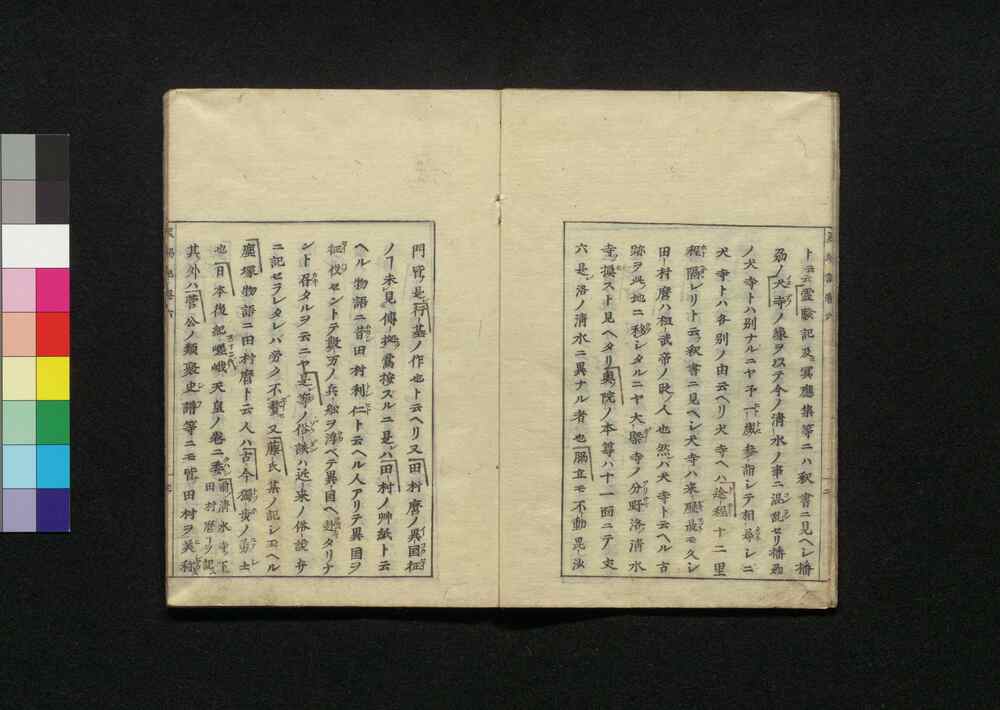 ト云云霊験記及冥應集等ニハ釈書ニ見ヘシ播
州ノ犬寺ノ縁ヲ以テ今ノ清水ノ事ニ混乱セリ播州
ノ犬寺トハ別ナルニヤ予一歳参詣シテ相尋シニ
犬寺トハ各別ノ由云ヘリ犬寺ヘハ途程十二里
程隔レリト云釈書ニ見ヘシ犬寺ハ来歴最モ久シ
田村麿ハ桓武帝ノ時ノ人也然ハ犬寺ト云ヘル古
跡ヲ此地ニ移シタルニヤ大槩寺ノ分野洛清水
寺ニ擬スト見ヘタリ奥院ノ本尊ハ十一面ニテ丈
六是洛ノ清水ニ異ナル者也脇立モ不動毘沙
門皆是行基ノ作也ト云ヘリ又田村麿ノ異国征
ノ未見傳拠嘗按スルニ是ハ田村ノ艸紙ト云
ヘル物語ニ昔田村利仁ト云ヘル人アリテ異国ヲ
征伐セントテ数万ノ兵船ヲ浮ベテ異国ヘ赴タリナ
ント有タルヲ云ニヤ是等ノ俗談ハ近来ノ俗説弁
ニ記セラレタレバ労ク不贅又藤氏某ノ記シ玉ヘル
塵塚物語ニ田村麿ト云人ハ古今獨歩ノ勇士
也日本後紀嵯峨天皇ノ巻ニ委前清水寺ノ下田村麿ヲ記ス
其外ハ菅公ノ類聚史譜等ニモ皆田村ヲ美称